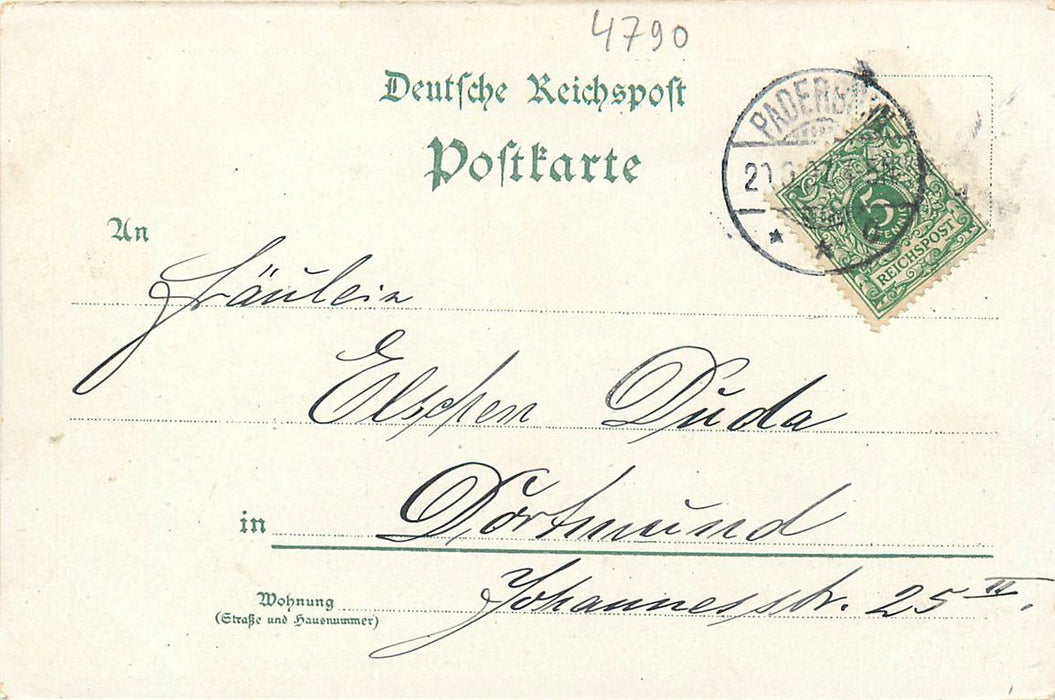 4790
Deutsche Reichspost
Postkarte
PADERBORN
5
PFENNIG
REICHSPOST
An
Fräulein
Elschen Duda
in Dortmund
Wohnung Johannesstr. 25 II.
(Straße und Hausnummer)